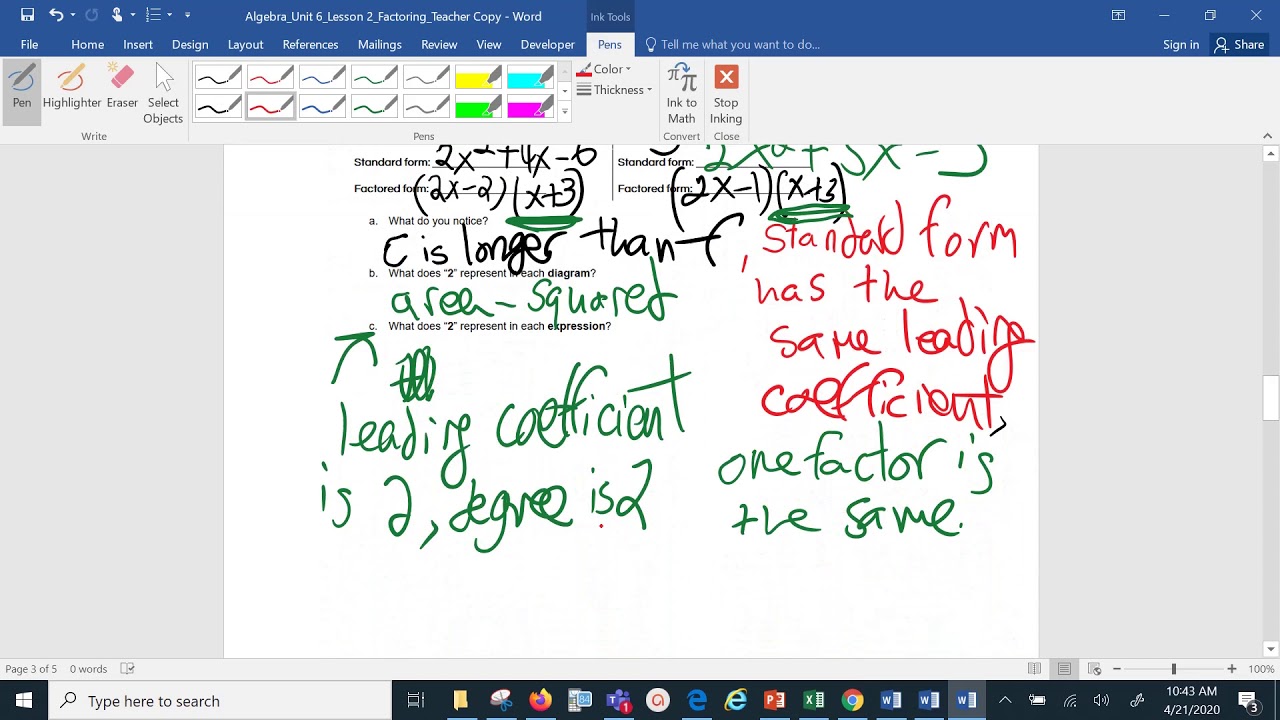 Algebra_Unit 6_Lesson 2_Factoring_Teacher Copy - Word
Ink Tools
File Home Insert Design Layout References Mailings Review View Developer Pens Tell me what you want to do... Sign in Share
Pen Highlighter Eraser Select Objects
Color
Thickness
Ink to Math
Stop Inking
Write Pens Convert Close
Standard form: 2x²+4x-6
Factored form: (2x-2)(x+3)
Standard form:
Factored form: (2x-1)(x+3)
a. What do you notice?
C is longer than f
, Standard form
has the
same leading
coefficient,
one factor is
the same.
b. What does "2" represent in each diagram?
area - squared
c. What does "2" represent in each expression?
leading coefficient
is 2, degree is 2
Page 3 of 5 0 words 100%
Type here to search
10:43 AM
4/21/2020